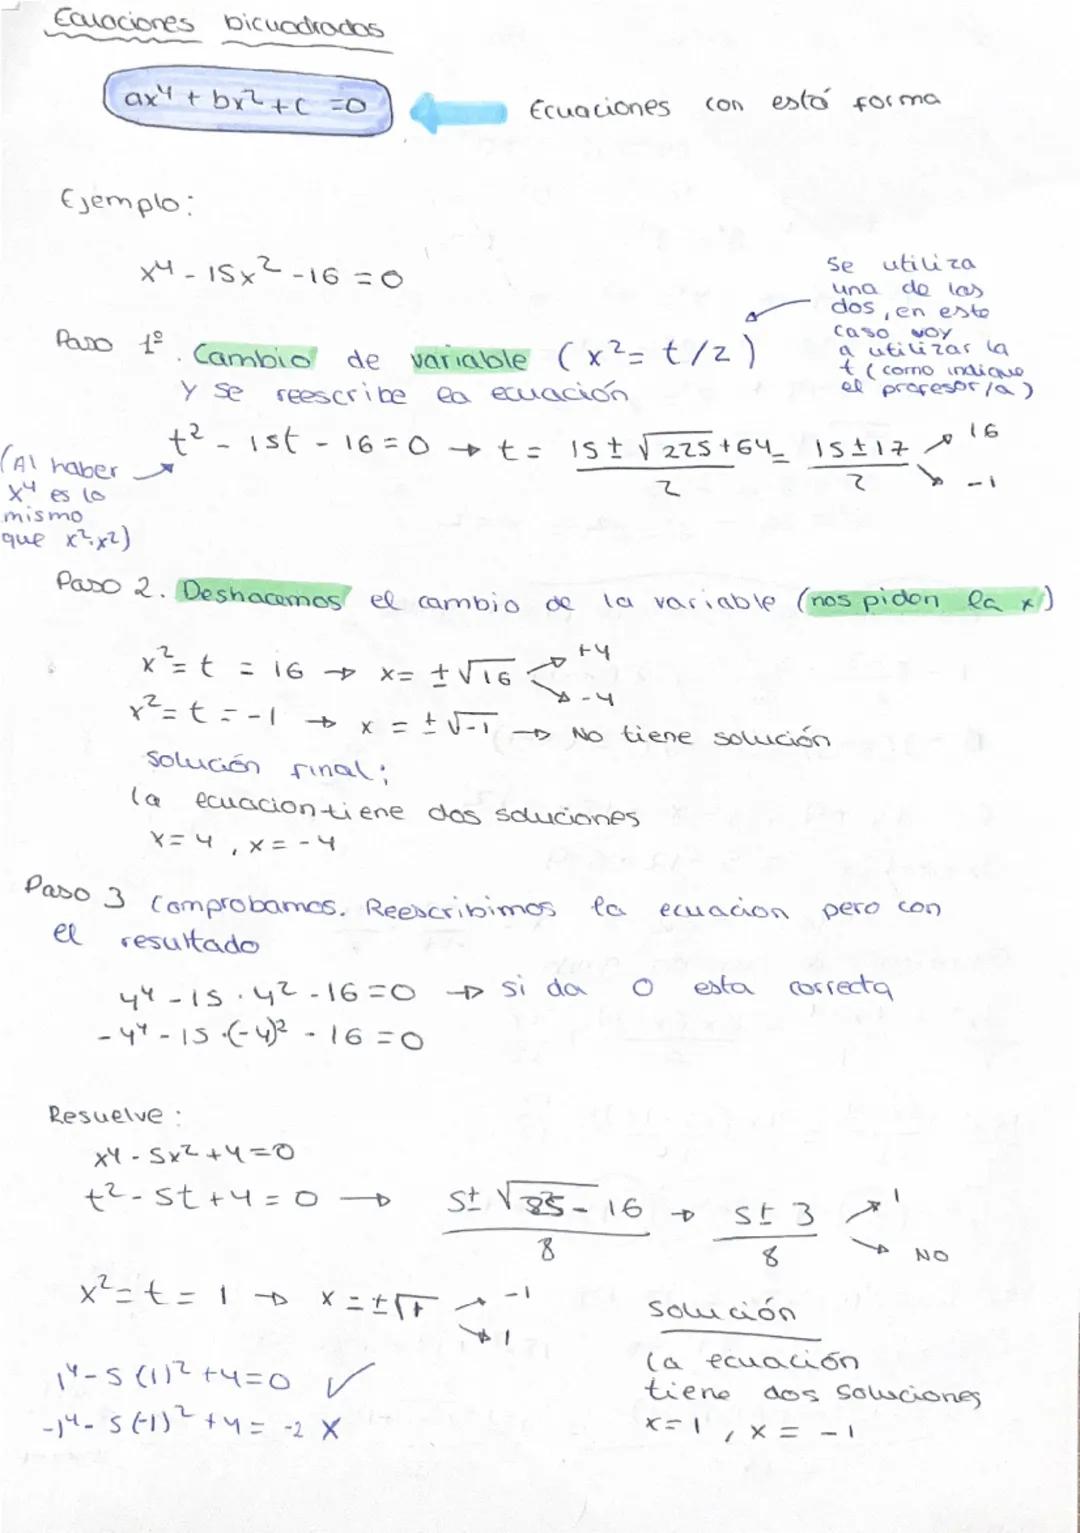 Ecuaciones bicuadradas
ax⁴ + bx² + c = 0
Ecuaciones con está forma
Ejemplo:
x⁴ - 15x² - 16 = 0
se utiliza
una de las
dos, en este
caso voy
a utilizar la
t (como indique
el profesor/a)
Paso 1º. Cambio de variable (x² = t/z)
y se reescribe la ecuación
t² - 15t - 16 = 0 → t = (15 ± √225+64)/2 = (15 ± 17)/2 → 16
→ -1
(Al haber
x⁴ es lo
mismo
que x²·x²)
Paso 2. Deshacemos el cambio de la variable (nos piden la x)
x² = t = 16 → x = ±√16 → +4
→ -4
x² = t = -1 → x = ±√-1 → No tiene solución
Solución final:
la ecuacion tiene dos soluciones
x = 4, x = -4
Paso 3 Comprobamos. Reescribimos la ecuacion pero con
el resultado
4⁴ - 15 · 4² - 16 = 0 → si da 0 esta correcta
-4⁴ - 15 · (-4)² - 16 = 0
Resuelve:
x⁴ - 5x² + 4 = 0
t² - 5t + 4 = 0 → (5 ± √25 - 16)/8 → (5 ± 3)/8 → 1
→ NO
x² = t = 1 → x = ±√1 → -1
→ 1
1⁴ - 5(1)² + 4 = 0 ✓
-1⁴ - 5(-1)² + 4 = -2 X
Solución
la ecuación
tiene dos soluciones
x = 1, x = -1